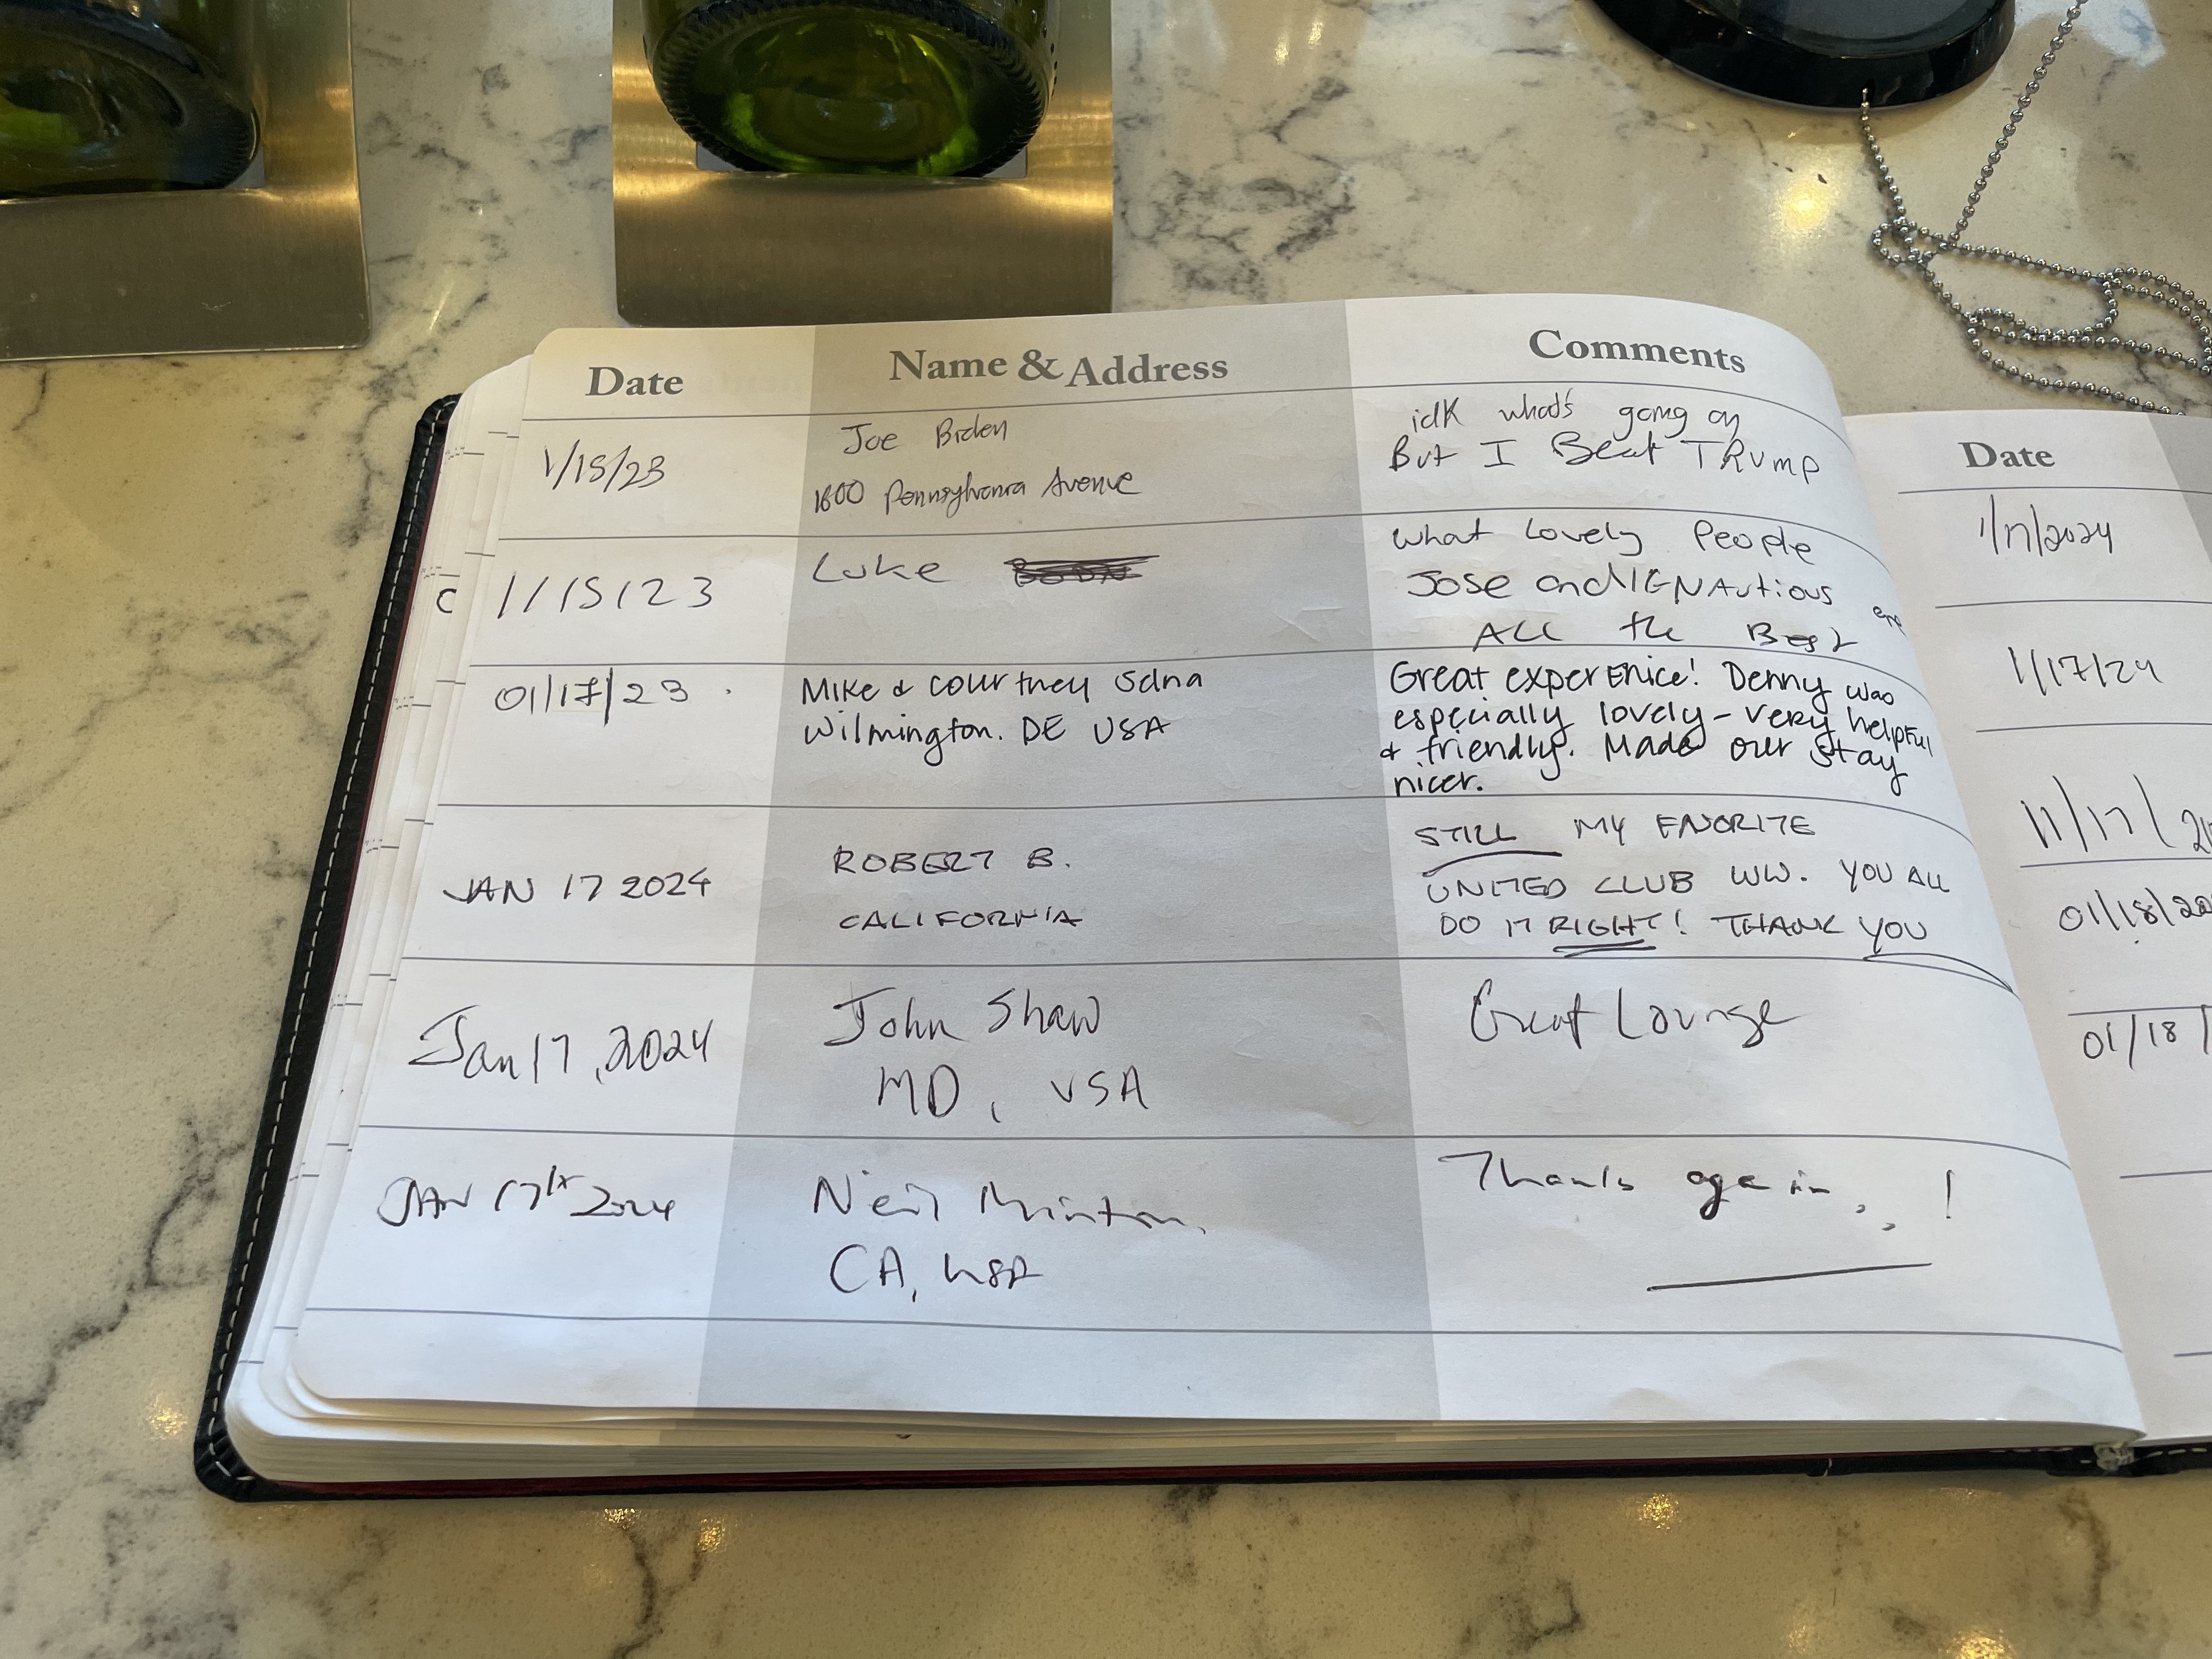 Date Name & Address Comments
1/15/23 Joe Biden idk what's going on
1600 Pennsylvania Avenue But I Beat TRUMP
1/15/23 Luke What Lovely People
Jose and IGNAutious
ALL the Best
01/17/23 Mike & Courtney Great experEnice! Denny was
Wilmington. DE USA especially lovely - very helpful
& friendly. Made our stay
nicer.
JAN 17 2024 ROBERT B. STILL MY FAVORITE
CALIFORNIA UNITED CLUB WW. YOU ALL
DO IT RIGHT! THANK YOU
Jan 17, 2024 John Shaw Great Lounge
MD, USA
JAN 17th 2024 Neil Thanks again..!
CA, USA
Date
1/17/2024
1/17/24
11/17/
01/18/20
01/18/